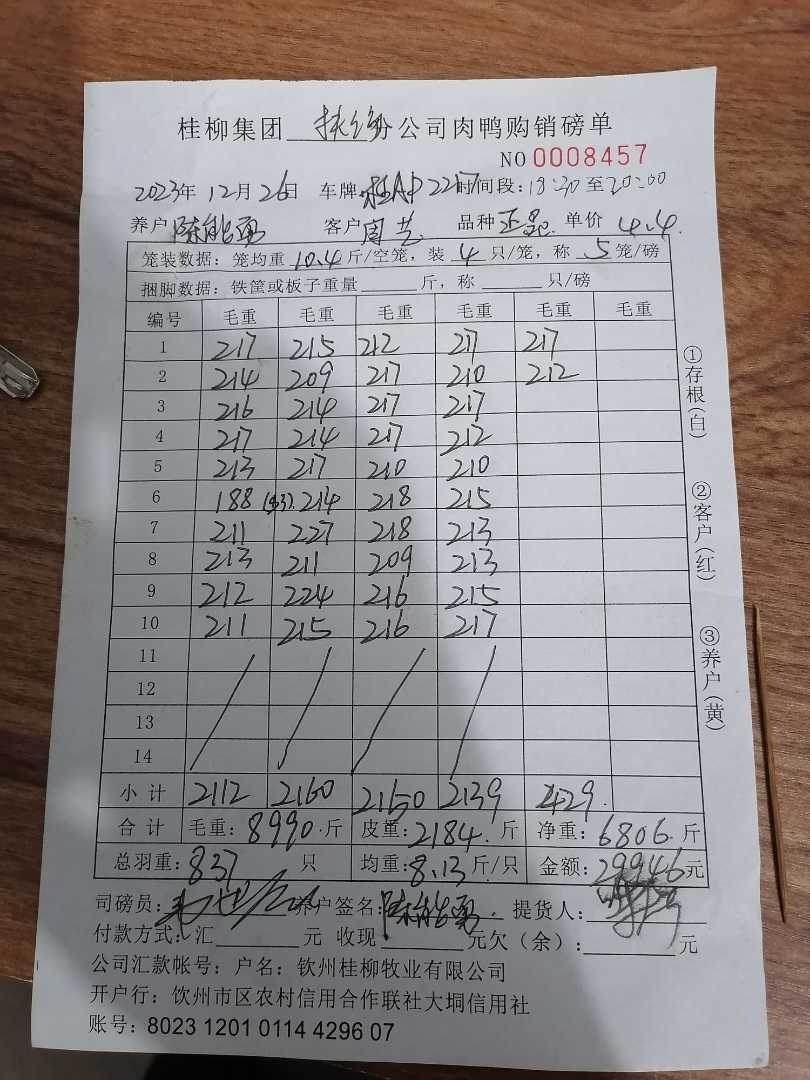 桂柳集团 扶绥分公司肉鸭购销磅单
NO 0008457
2023年12月26日 车牌:桂AP2217 时间段:18:30至20:00
养户 陈能勇 客户 周艺 品种 单价 4.4
笼装数据:笼均重 10.4 斤/空笼,装 4 只/笼,称 5 笼/磅
捆脚数据:铁筐或板子重量 斤,称 只/磅
编号 毛重 毛重 毛重 毛重 毛重 毛重
1 217 215 212 217 217
2 214 209 217 210 212
3 216 214 217 217
4 217 214 217 212
5 213 217 210 210
6 188 214 218 215
7 211 227 218 213
8 213 211 209 213
9 212 224 216 215
10 211 215 216 217
11
12
13
14
小计 2112 2160 2150 2139 429
合计 毛重:8990斤 皮重:2184斤 净重:6806斤
总羽重:837只 均重:8.13斤/只 金额:29946元
司磅员: 养户签名:陈能勇 提货人:
付款方式:汇 元 收现 元欠(余): 元
公司汇款帐号:户名:钦州桂柳牧业有限公司
开户行:饮州市区农村信用合作联社大垌信用社
账号:8023 1201 0114 4296 07
①存根(白)
②客户(红)
③养户(黄)